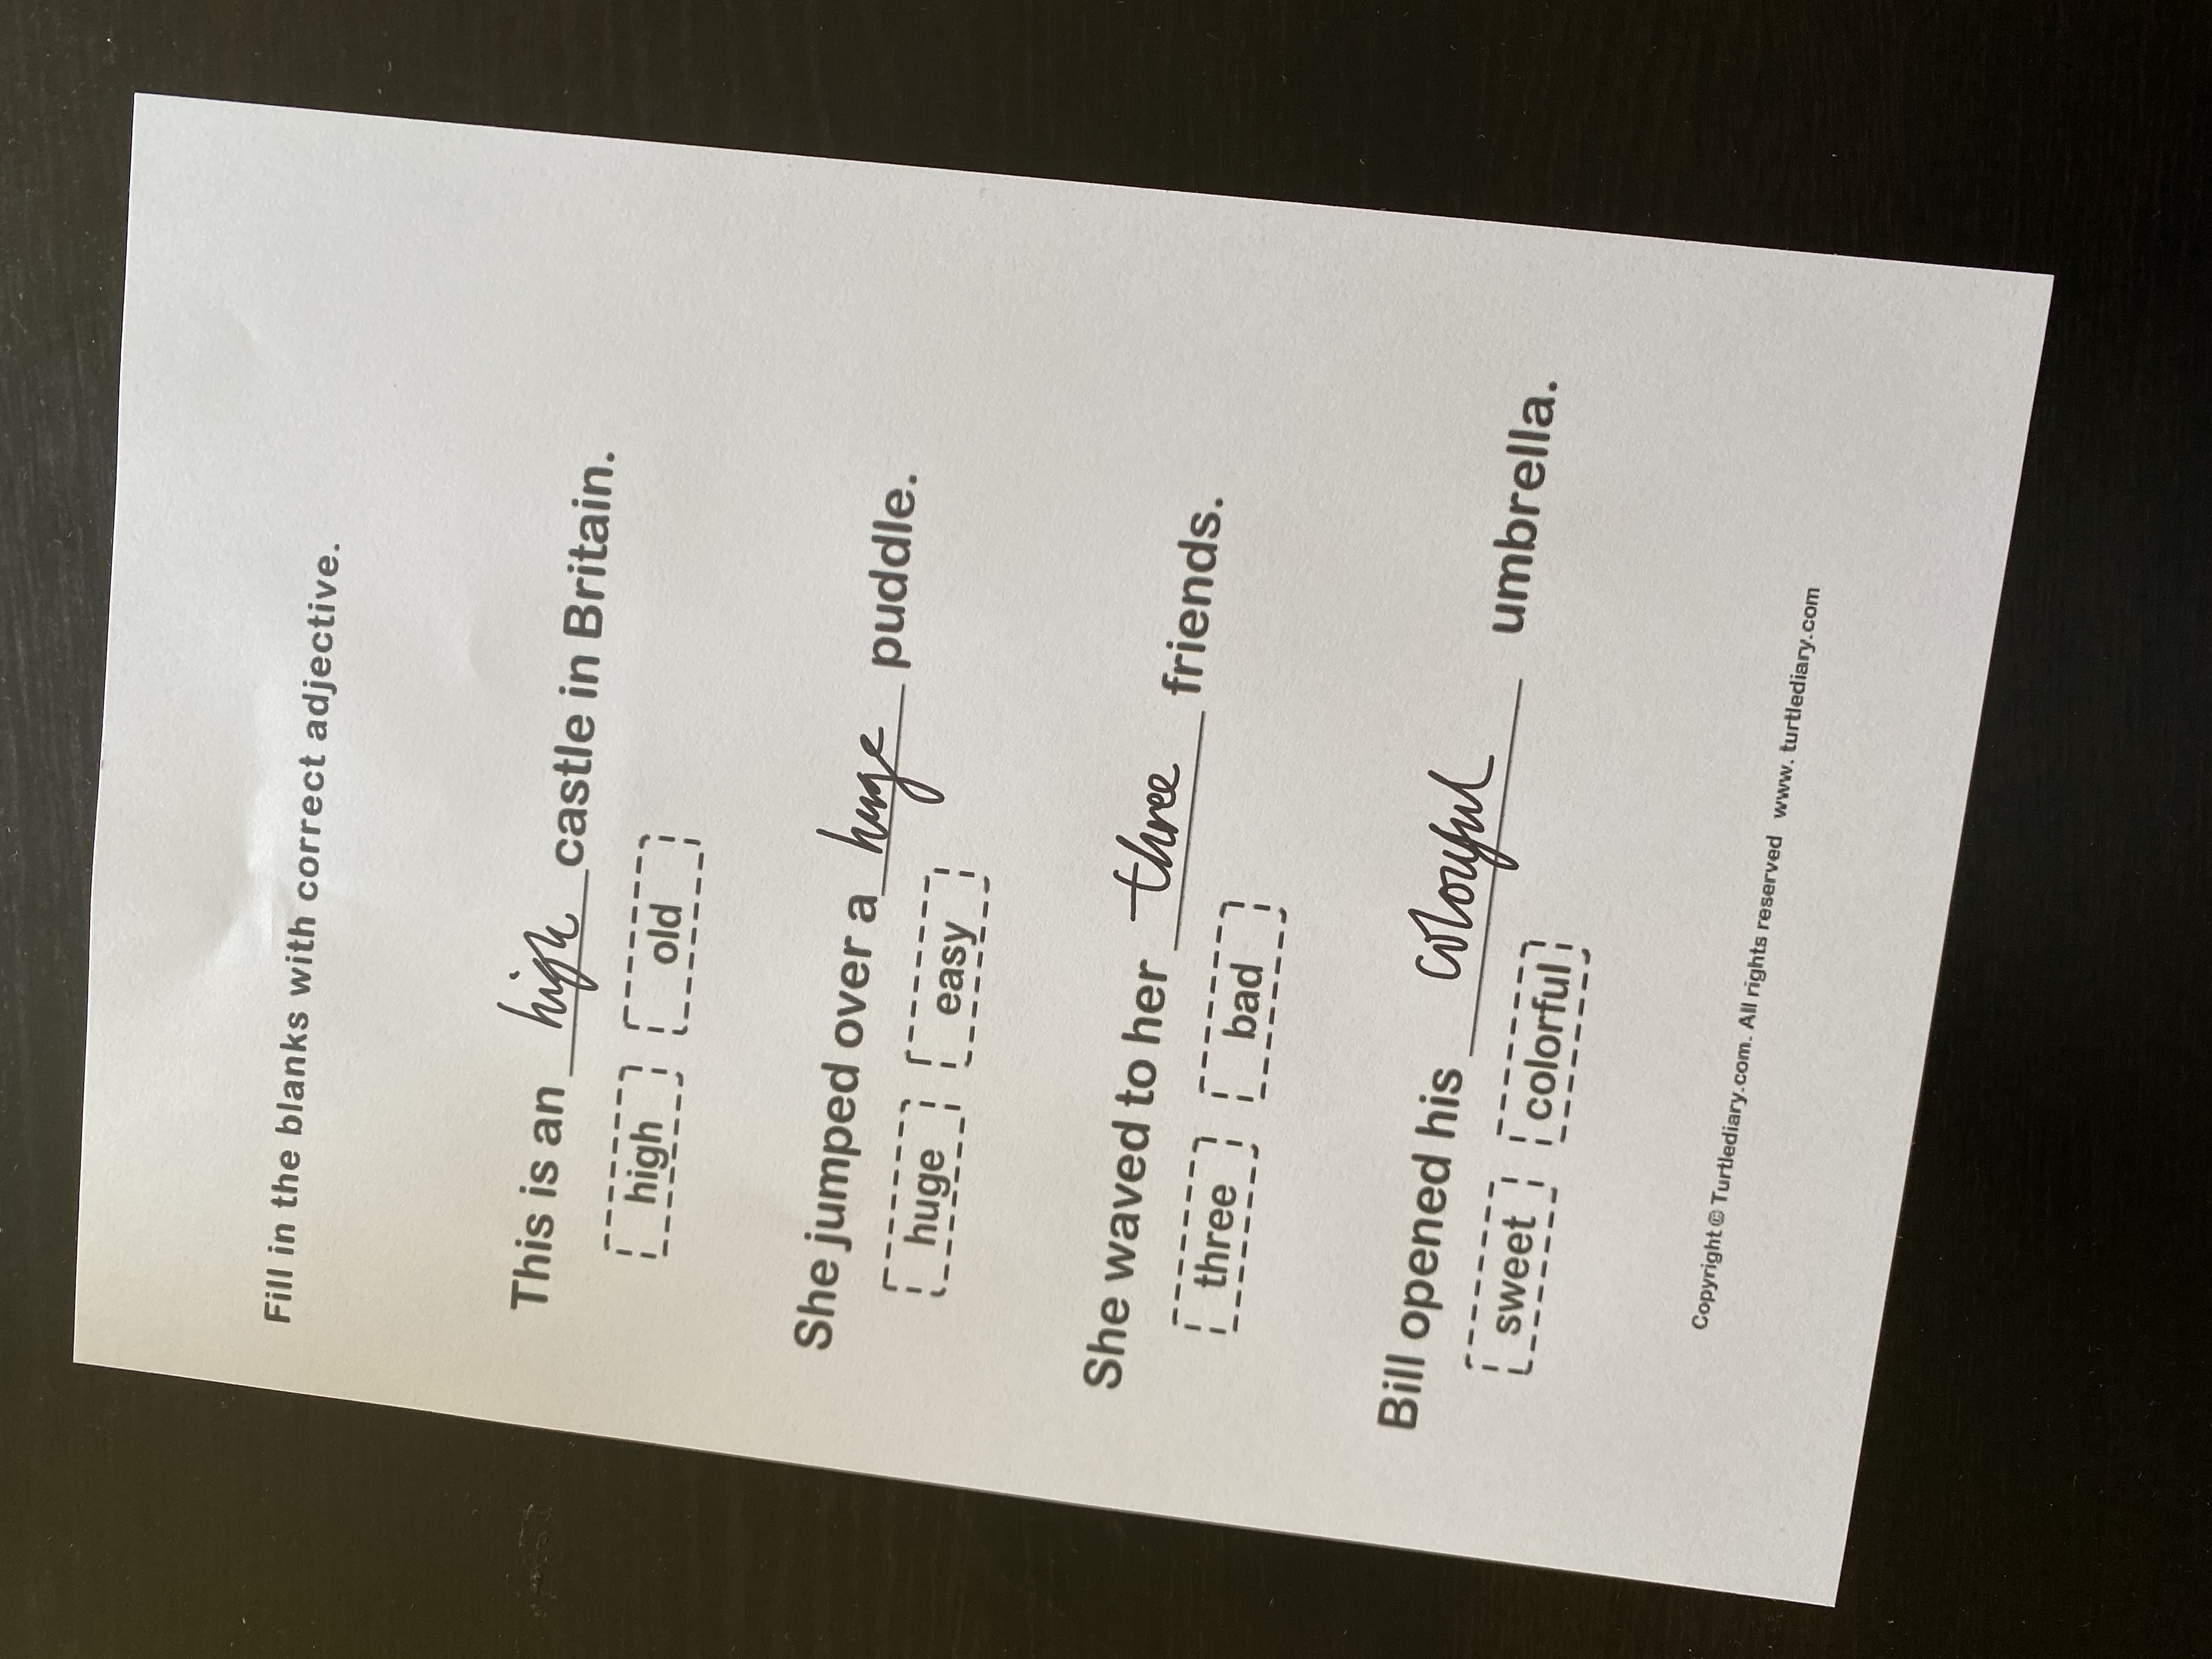 Fill in the blanks with correct adjective.
This is an high castle in Britain.
high old
She jumped over a huge puddle.
huge easy
She waved to her three friends.
three bad
Bill opened his colourful umbrella.
sweet colorful
Copyright © Turtlediary.com. All rights reserved www. turtlediary.com